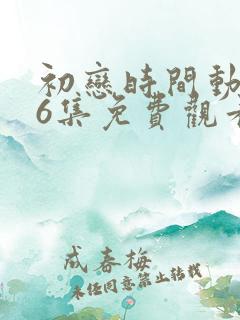 初戀時間動
6集免費觀看
成春梅
未经同意禁止转载